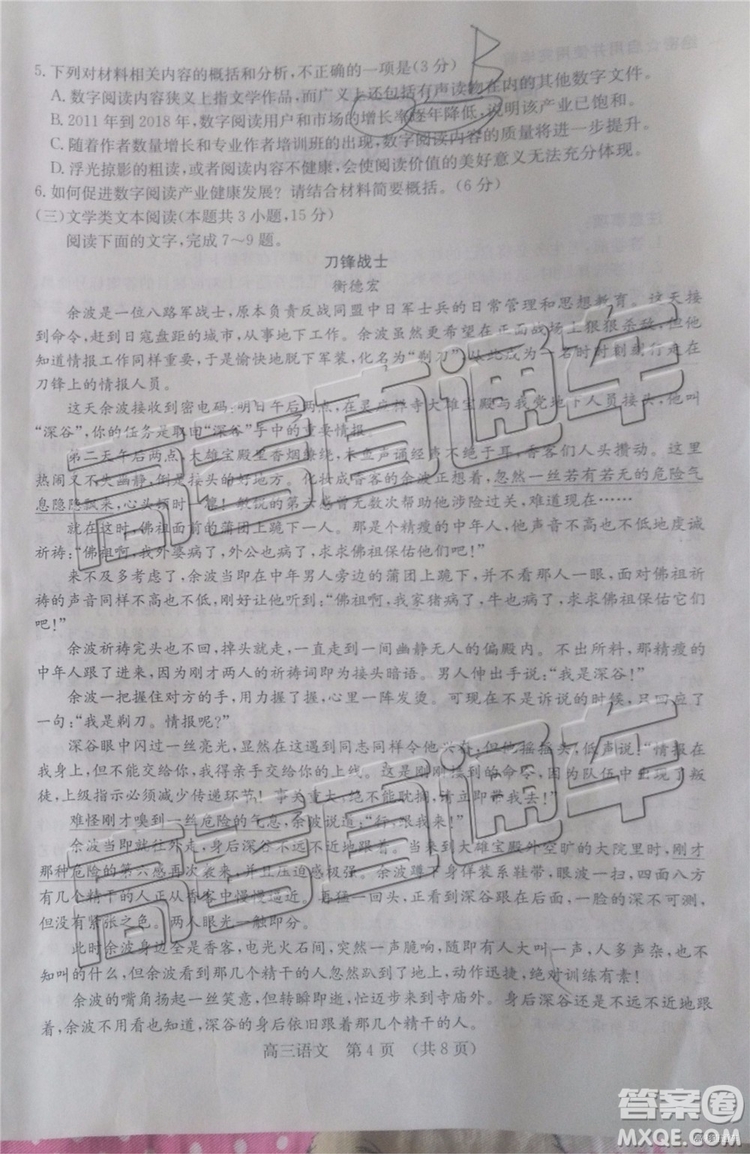 B
5. 下列对材料相关内容的概括和分析，不正确的一项是(3分)
A. 数字阅读内容狭义上指文学作品，而广义上还包括有声读物在内的其他数字文件。
B. 2011年到2018年，数字阅读用户和市场的增长率逐年降低，说明该产业已饱和。
C. 随着作者和作者培训班的出现，数字阅读内容的质量将进一步提升。
D. 浮光掠影的粗读，或者阅读内容不健康，会使阅读价值的美好意义无法充分体现。
6. 如何促进数字阅读产业健康发展？请结合材料简要概括。(6分)
(三)文学类文本阅读(本题共3小题，15分)
阅读下面的文字，完成7～9题。
刀锋战士
衡德宏
余波是一位八路军战士，原本负责反战同盟中日军士兵的日常管理和思想教育。这天接
到命令，赶到日寇盘踞的城市，从事地下工作。余波虽然更希望在正面战场上狠狠杀敌，但他
知道情报工作同样重要，于是愉快地脱下军装，化名为“剃刀”，从此成为一名时时刻刻行走在
刀锋上的情报人员。
这天余波接收到密电码：明日午后两点，在灵应禅寺大雄宝殿与我党地下人员接头，他叫
“深谷”，你的任务是取由“深谷”手中的重要情报。
第二天午后两点，大雄宝殿里香烟缭绕，木鱼声诵经声不绝于耳，香客们人头攒动。这里
热闹又不失幽静，是接头的好地方。化妆成香客的余波正想着，忽然一丝若有若无的危险气
息隐隐飘来，心头顿时一凛！敏锐的第六感曾无数次帮助他涉险过关，难道现在……
就在这时，佛祖面前的蒲团上跪下一人。那是个精瘦的中年人，他声音不高也不低地虔诚
祈祷：“佛祖啊，我外婆病了，外公也病了，求求佛祖保佑他们吧！”
来不及多想，余波当即在中年男人旁边的蒲团上跪下，并不看那人一眼，面对佛祖祈
祷的声音同样不高不低：“佛祖啊，我家猪病了，牛也病了，求求佛祖保佑它们
吧！”
余波祈祷完头也不回，掉头就走，一直来到一间幽静无人的偏殿内。不出所料，那精瘦的
中年人跟了进来，因为刚才两人的祈祷词即为接头暗语。男人伸出手说：“我是深谷！”
余波一把握住对方的手，握了又握，心里一阵发烫。可现在不是诉说的时候，只回应了
一句：“我是剃刀。情报呢？”
深谷眼中闪过一丝亮光，显然在这里遇到同志同样令他兴奋，但他摇摇头，低声说：“情报在
我身上，但不能交给你，我得亲手交给你的上线。这是刚刚接到的命令，因为队伍中出了叛
徒，上级指示必须减少传递环节！事关重大，一刻也不能耽搁，请立即带我去！”
难怪刚才嗅到一丝危险的气息，余波遂道：“行，跟我来！”
余波当即起身就走，身后深谷不远不近地跟着。当来到大雄宝殿外空旷的大院里时，刚才
那种危险的第六感再次袭来，并且压迫感极强。余波蹲下身佯装系鞋带，眼波一扫，四面八方
有几个人正在香客中慢慢逼近。再猛一回头，正碰上深谷的目光，他一脸的深不可测，
但没有紧张之色。两人眼光一触即分。
此时余波身边全是香客，电光火石间，突然一声脆响，有人大叫一声，人多声杂，也不
知叫的什么，但余波看到那几个精干的人忽然趴到了地上，动作迅捷，绝对训练有素！
余波的嘴角扬起一丝笑意，但转瞬即逝，忙迈步来到寺庙外。身后深谷还是不远不近跟
着，余波不用看也知道，深谷的身后依旧跟着那几个精干的人。
高三语文　第4页　(共8页)
高考直通车
高考直通车
答案圈
MXQE.COM